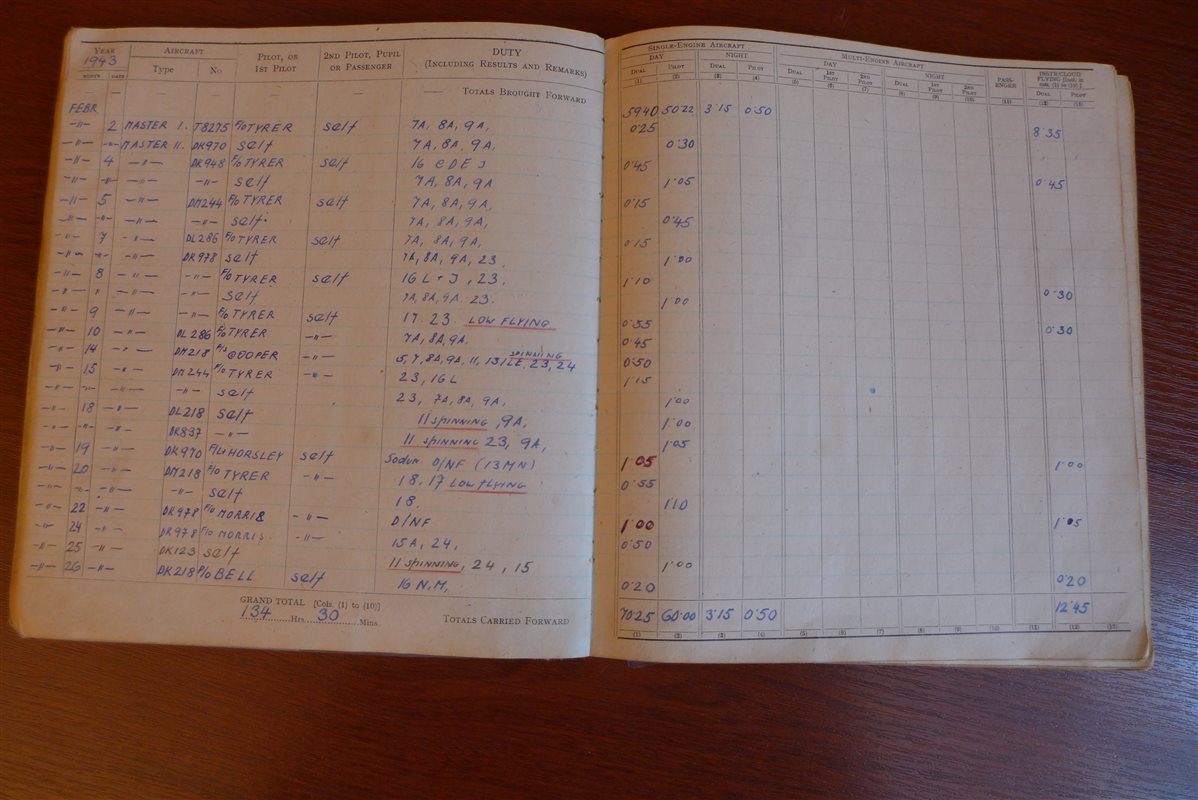 YEAR 1943 AIRCRAFT PILOT, OR 1ST PILOT 2ND PILOT, PUPIL OR PASSENGER DUTY (INCLUDING RESULTS AND REMARKS)
MONTH DATE Type No
— — — — — — — TOTALS BROUGHT FORWARD
FEBR
-"- 2 MASTER I. T8275 F/O TYRER self 7A, 8A, 9A,
-"- -"- MASTER II. DK970 self 7A, 8A, 9A.
-"- 4 -"- DK948 F/O TYRER self 16 C D E J
-"- -"- -"- -"- self 7A, 8A, 9A
-"- 5 -"- DM244 F/O TYRER self 7A, 8A, 9A,
-"- -"- -"- -"- self. 7A, 8A, 9A,
-"- 7 -"- DL286 F/O TYRER self 7A, 8A, 9A,
-"- -"- DK978 self 7A, 8A, 9A, 23.
-"- 8 -"- -"- F/O TYRER self 16 L + J, 23.
-"- " -"- -"- self 7A, 8A, 9A. 23.
-"- 9 -"- -"- F/O TYRER self 17. 23. LOW FLYING
-"- 10 -"- DL286 F/O TYRER -"- 7A, 8A, 9A,
-"- 14 -"- DM218 F/S COOPER -"- 5, 7, 8A, 9A, 11, SPINNING 23, 24
-"- 15 -"- DM244 F/O TYRER -"- 23, 16L
-"- -"- -"- -"- self 23, 7A, 8A, 9A,
-"- 18 -"- DL218 self 11 SPINNING, 9A,
-"- -"- -"- DK837 -"- 11 SPINNING 23, 9A,
-"- 19 -"- DK970 F/Lt HORSLEY self Sodium D/NF (13MN)
-"- 20 -"- DM218 F/O TYRER -"- 18, 17 LOW FLYING
-"- -"- -"- -"- self 18.
-"- 22 -"- DK978 F/O MORRIS -"- D/NF
-"- 24 -"- DK978 F/O MORRIS -"- 15A, 24,
-"- 25 -"- DK123 self 11 SPINNING, 24, 15
-"- 26 -"- DK218 P/O BELL self 16 N.M,
GRAND TOTAL [Cols. (1) to (10)]
134 Hrs 30 Mins. TOTALS CARRIED FORWARD
SINGLE-ENGINE AIRCRAFT MULTI-ENGINE AIRCRAFT PASSENGER INSTR/CLOUD FLYING [Incl. in cols. (1) to (10)]
DAY NIGHT DAY NIGHT
DUAL PILOT DUAL PILOT DUAL 1ST PILOT 2ND PILOT DUAL 1ST PILOT 2ND PILOT DUAL PILOT
(1) (2) (3) (4) (5) (6) (7) (8) (9) (10) (11) (12) (13)
59.40 50.22 3.15 0.50 8.35
0.25
0.30
0.45 0.45
1.05
0.15
0.45
0.15
1.00
1.10 0.30
1.00
0.55 0.30
0.45
0.50
1.15
1.00
1.00
1.05
1.05 1.00
0.55
1.10
1.00 1.05
0.50
1.00
0.20 0.20
70.25 60.00 3.15 0.50 12.45
(1) (2) (3) (4) (5) (6) (7) (8) (9) (10) (11) (12) (13)